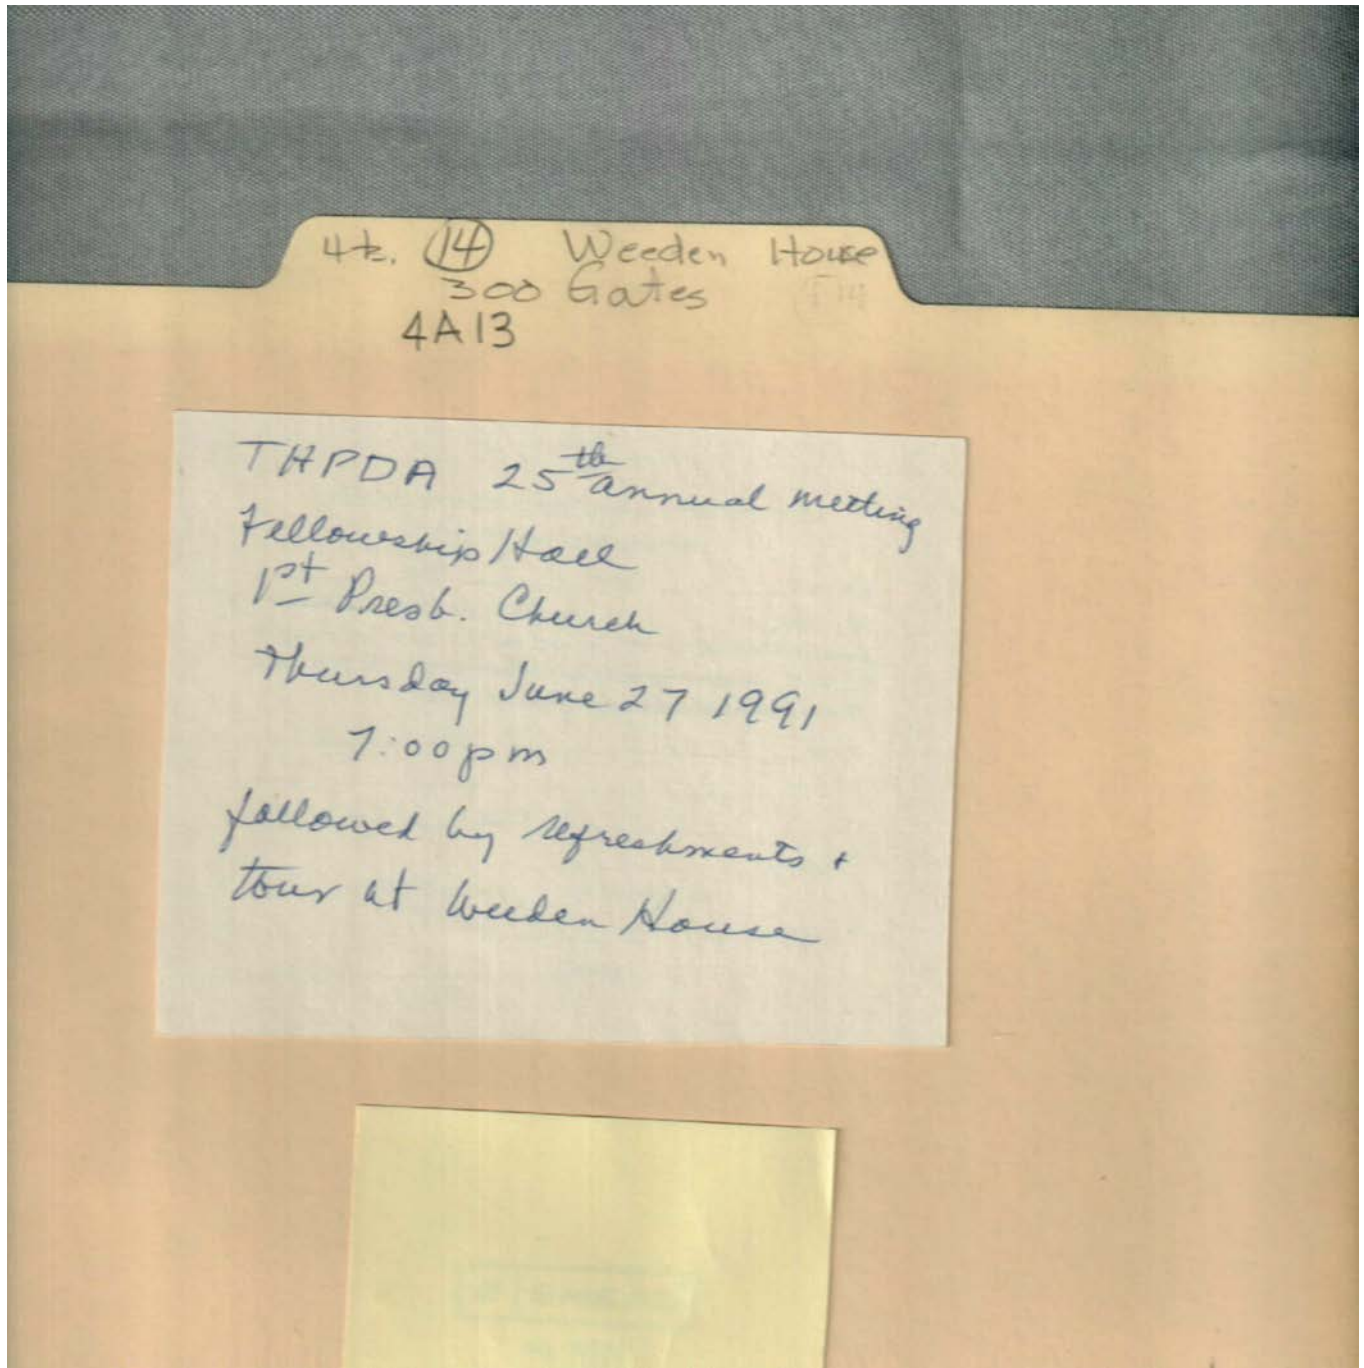 4k. 14 Weeden House
300 Gates
4A13
THPDA 25th annual meeting
Fellowship Hall
1st Presb. Church
Thursday June 27 1991
7:00pm
followed by refreshments +
tour at Weeden House